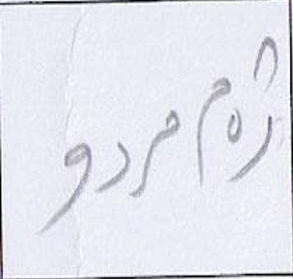 ژەم مردو